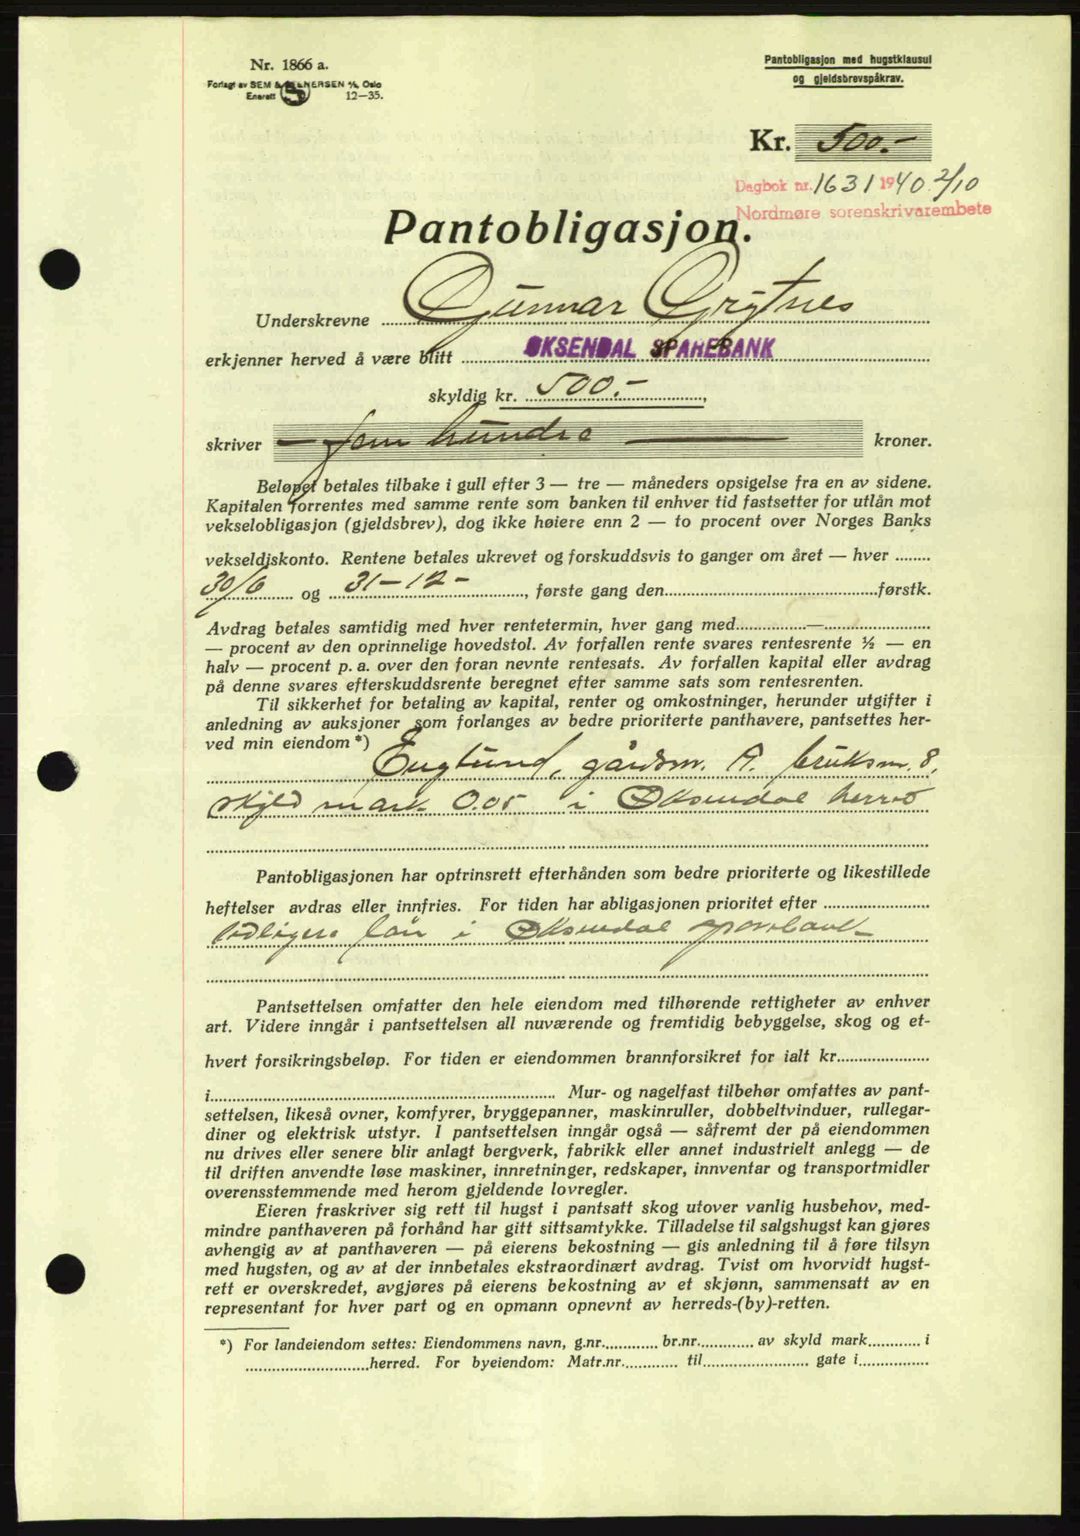 Nr. 1866 a.
Forlagt av SEM & STENERSEN A/S, Oslo
Enerett 12-35.
Pantobligasjon med hugstklausul
og gjeldsbrevspåkrav.
Kr. 500.-
Dagbok nr. 1631 1940 2/10
Nordmøre sorenskrivarembete
Pantobligasjon.
Underskrevne Gunnar Grytnes
erkjenner herved å være blitt ØKSENDAL SPAREBANK
skyldig kr. 500.-,
skriver — fem hundre — kroner.
Beløpet betales tilbake i gull efter 3 — tre — måneders opsigelse fra en av sidene.
Kapitalen forrentes med samme rente som banken til enhver tid fastsetter for utlån mot
vekselobligasjon (gjeldsbrev), dog ikke høiere enn 2 — to procent over Norges Banks
vekseldiskonto. Rentene betales ukrevet og forskuddsvis to ganger om året — hver ........
30/6 og 31-12-, første gang den................førstk.
Avdrag betales samtidig med hver rentetermin, hver gang med................—................
— procent av den oprinnelige hovedstol. Av forfallen rente svares rentesrente ½ — en
halv — procent p. a. over den foran nevnte rentesats. Av forfallen kapital eller avdrag
på denne svares efterskuddsrente beregnet efter samme sats som rentesrenten.
Til sikkerhet for betaling av kapital, renter og omkostninger, herunder utgifter i
anledning av auksjoner som forlanges av bedre prioriterte panthavere, pantsettes her-
ved min eiendom *)
Englund, gårdsnr. A. bruksnr. 8,
skyld mark 0.05 i Øksendal herred
Pantobligasjonen har optrinsrett efterhånden som bedre prioriterte og likestillede
heftelser avdras eller innfries. For tiden har abligasjonen prioritet efter ................
tidligere lån i Øksendal sparebank
Pantsettelsen omfatter den hele eiendom med tilhørende rettigheter av enhver
art. Videre inngår i pantsettelsen all nuværende og fremtidig bebyggelse, skog og et-
hvert forsikringsbeløp. For tiden er eiendommen brannforsikret for ialt kr................
i................ Mur- og nagelfast tilbehør omfattes av pant-
settelsen, likeså ovner, komfyrer, bryggepanner, maskinruller, dobbeltvinduer, rullegar-
diner og elektrisk utstyr. I pantsettelsen inngår også — såfremt der på eiendommen
nu drives eller senere blir anlagt bergverk, fabrikk eller annet industrielt anlegg — de
til driften anvendte løse maskiner, innretninger, redskaper, innventar og transportmidler
overensstemmende med herom gjeldende lovregler.
Eieren fraskriver sig rett til hugst i pantsatt skog utover vanlig husbehov, med-
mindre panthaveren på forhånd har gitt sittsamtykke. Tilladelse til salgshugst kan gjøres
avhengig av at panthaveren — på eierens bekostning — gis anledning til å føre tilsyn
med hugsten, og av at der innbetales ekstraordinært avdrag. Tvist om hvorvidt hugst-
rett er overskredet, avgjøres på eierens bekostning av et skjønn, sammensatt av en
representant for hver part og en opmann opnevnt av herreds-(by)-retten.
*) For landeiendom settes: Eiendommens navn, g.nr............. br.nr............. av skyld mark............ i
................herred. For byeiendom: Matr.nr............. til................ gate i................